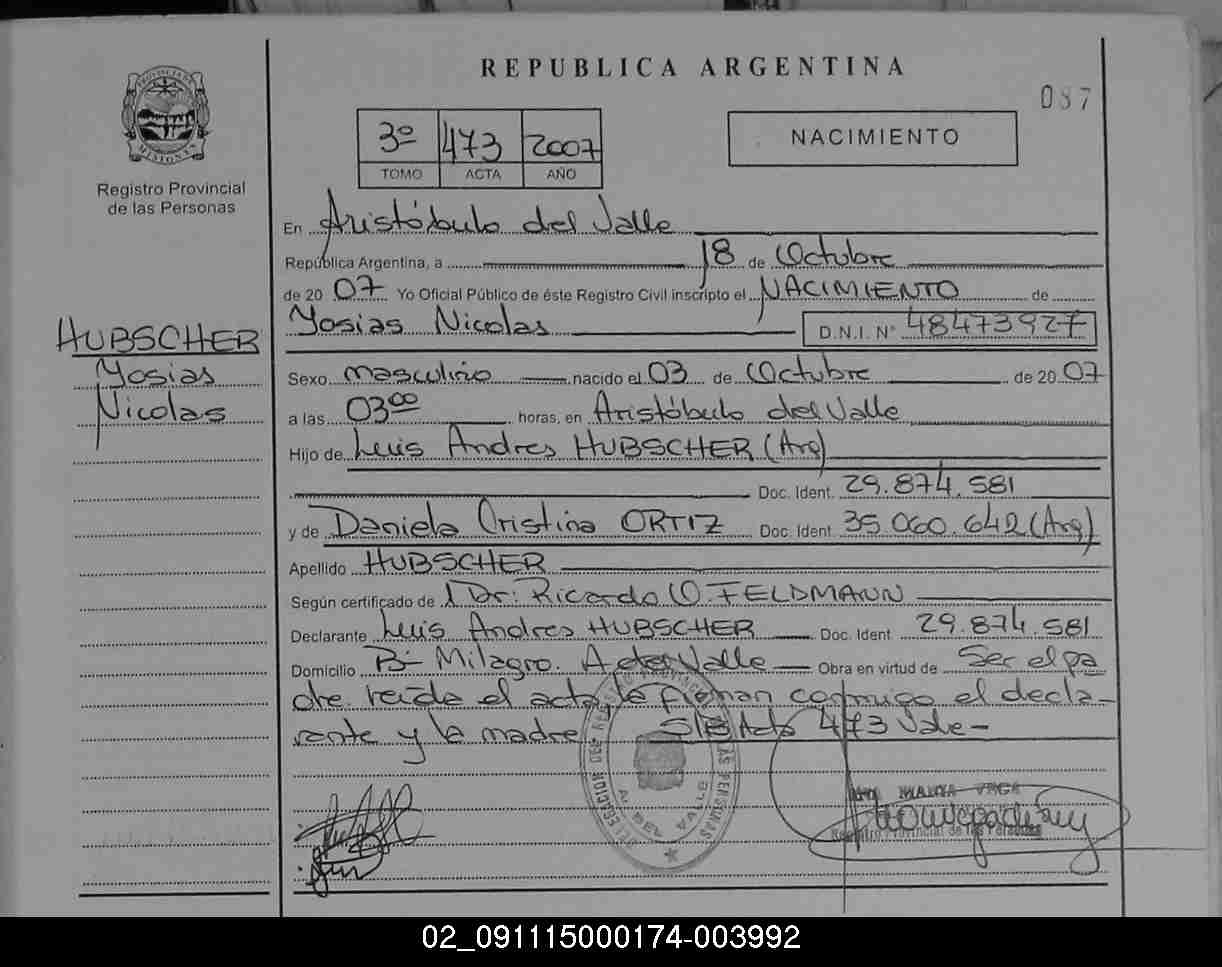 REPUBLICA ARGENTINA
087
PROVINCIA DE
MISIONES
Registro Provincial
de las Personas
3º 473 2007
TOMO ACTA AÑO
NACIMIENTO
En Aristóbulo del Valle
República Argentina, a 18 de Octubre
de 20 07 Yo Oficial Público de éste Registro Civil inscripto el NACIMIENTO de
Yosias Nicolas D.N.I. Nº 48473927
HUBSCHER
Yosias
Nicolas
Sexo masculino nacido el 03 de Octubre de 20 07
a las 03 00 horas, en Aristóbulo del Valle
Hijo de Luis Andres HUBSCHER (Arg)
Doc. Ident. 29.874.581
y de Daniela Cristina ORTIZ Doc. Ident. 35.060.642 (Arg)
Apellido HUBSCHER
Según certificado de Dr: Ricardo O. FELDMANN
Declarante Luis Andres HUBSCHER Doc. Ident 29.874.581
Domicilio Bº Milagro. A del Valle Obra en virtud de Ser el pa
dre. leída el acta, la firman conmigo el decla-
rante y la madre S/B Acta 473 Vale-
DELEGACION DEL REGISTRO PROVINCIAL DE LAS PERSONAS
A. DEL VALLE
MARIA
Registro Provincial de las Personas
02_091115000174-003992